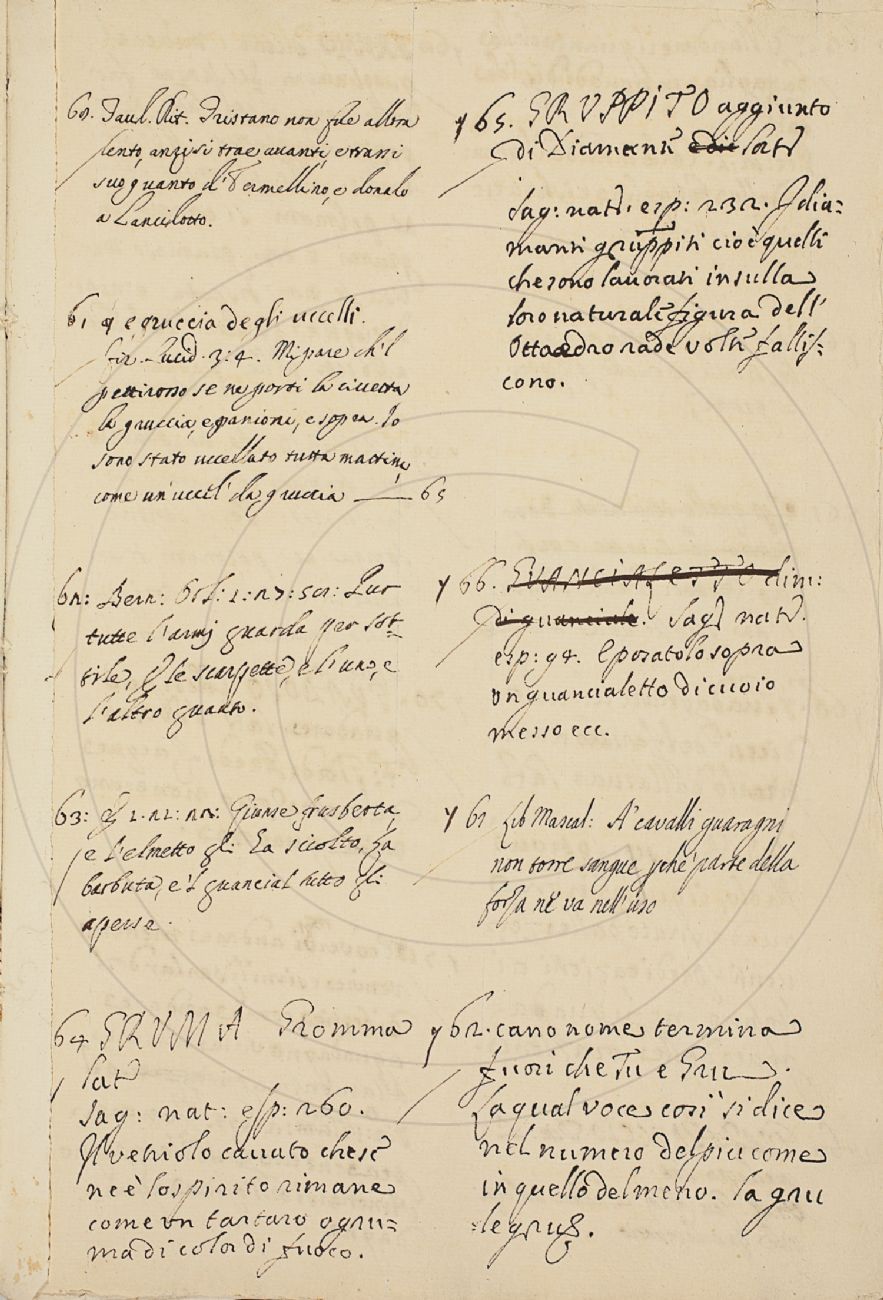 60. Taul. Rit. Tristano non fue allora
lento, anzi si trae avanti, e trassi
suo guanto d'Ermellino, e donalo
a Lancilotto.
61 e gruccia degli uccelli.
Fir. Lucid. 3: 4. Mi pare ch'l
pettirosso se ne porti la civetta
la gruccia, e panioni, e sopra. Io
sono stato uccellato tutta mattina,
come un uccel' da gruccia — 65
62: Bern: Orl: 1: 27: 50: Pur
tutte l'armj guarda per sot-
tile, E le scarpette, e l'uno, e
l'altro guanto.
63: E 1. 21: Giunse frusberta,
e l'elmetto gli ha sciolto, La
barbuta, e'l guancial tutto gli
aperse.
64 GRUMA Gromma
Sat
Sag: nat: esp: 260.
Il vetriolo cavato che se
ne è lo spirito rimane
come un tartaro o gru=
ma di color di fuoco.
y 65. GRUPPITO aggiunto
di Diamante Sat
Sag: nat. esp: 232. I dia=
manti gruppiti cioè quelli
che sono lavorati in sulla
loro naturale figura dell'
Ottaedro rade volte fallis-
cono.
y 66. GUANCIALETTO dim:
di guanciale. Sag nat.
esp: 94. E posatolo sopra
un guancialetto di cuoio
messo ecc.
y 61 Lib Mascal: A' cavalli guaragni
non torre sangue pchè parte della
forza ne va nell'uso
y 62. cano nome termina
fuori che Tu e Gru.
La qual voce così si dice
nel numero del piu come
in quello del meno. la gru
le gru.